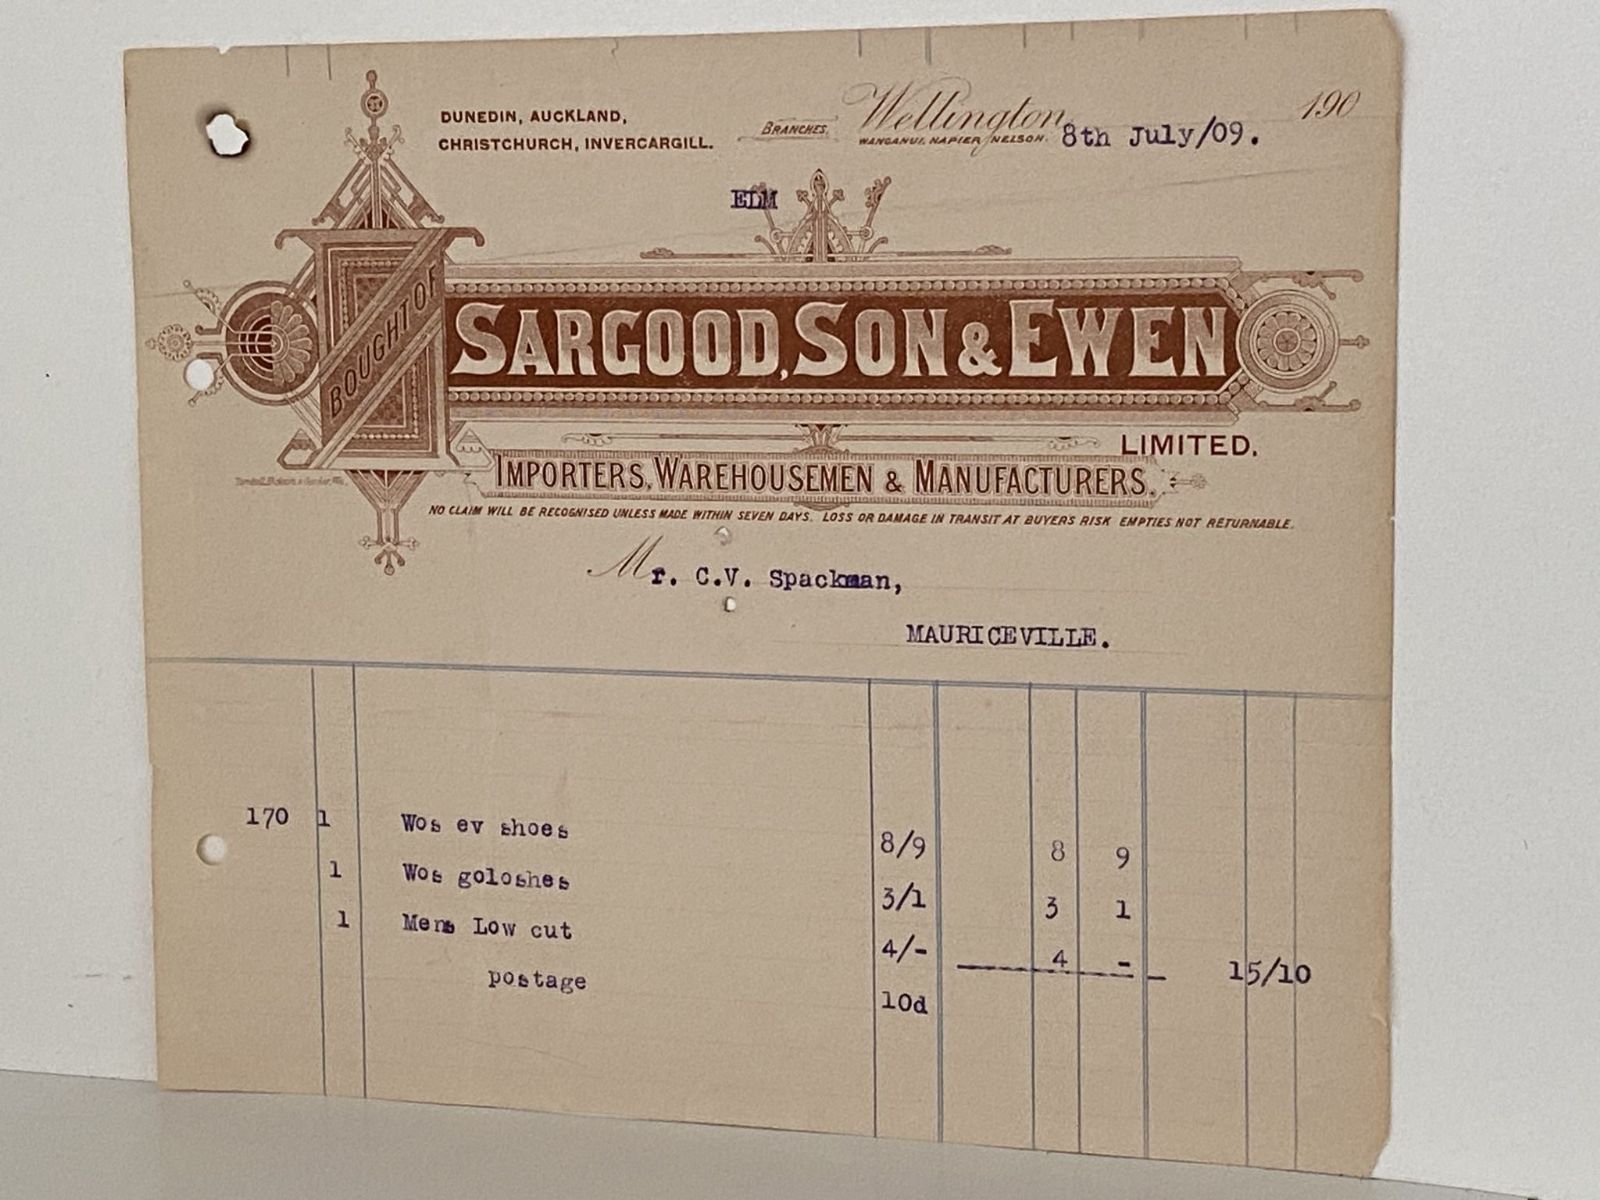 DUNEDIN, AUCKLAND,
CHRISTCHURCH, INVERCARGILL.
BRANCHES,
Wellington 190
WANGANUI, NAPIER, NELSON.
8th July/09.
ELM
BOUGHT OF
SARGOOD, SON & EWEN
LIMITED.
IMPORTERS, WAREHOUSEMEN & MANUFACTURERS.
NO CLAIM WILL BE RECOGNISED UNLESS MADE WITHIN SEVEN DAYS. LOSS OR DAMAGE IN TRANSIT AT BUYERS RISK EMPTIES NOT RETURNABLE.
Mr. C.V. Spackman,
MAURICEVILLE.
170 1 Wos ev shoes 8/9 8 9
1 Wos goloshes 3/1 3 1
1 Mens Low cut 4/- 4 - 15/10
postage 10d